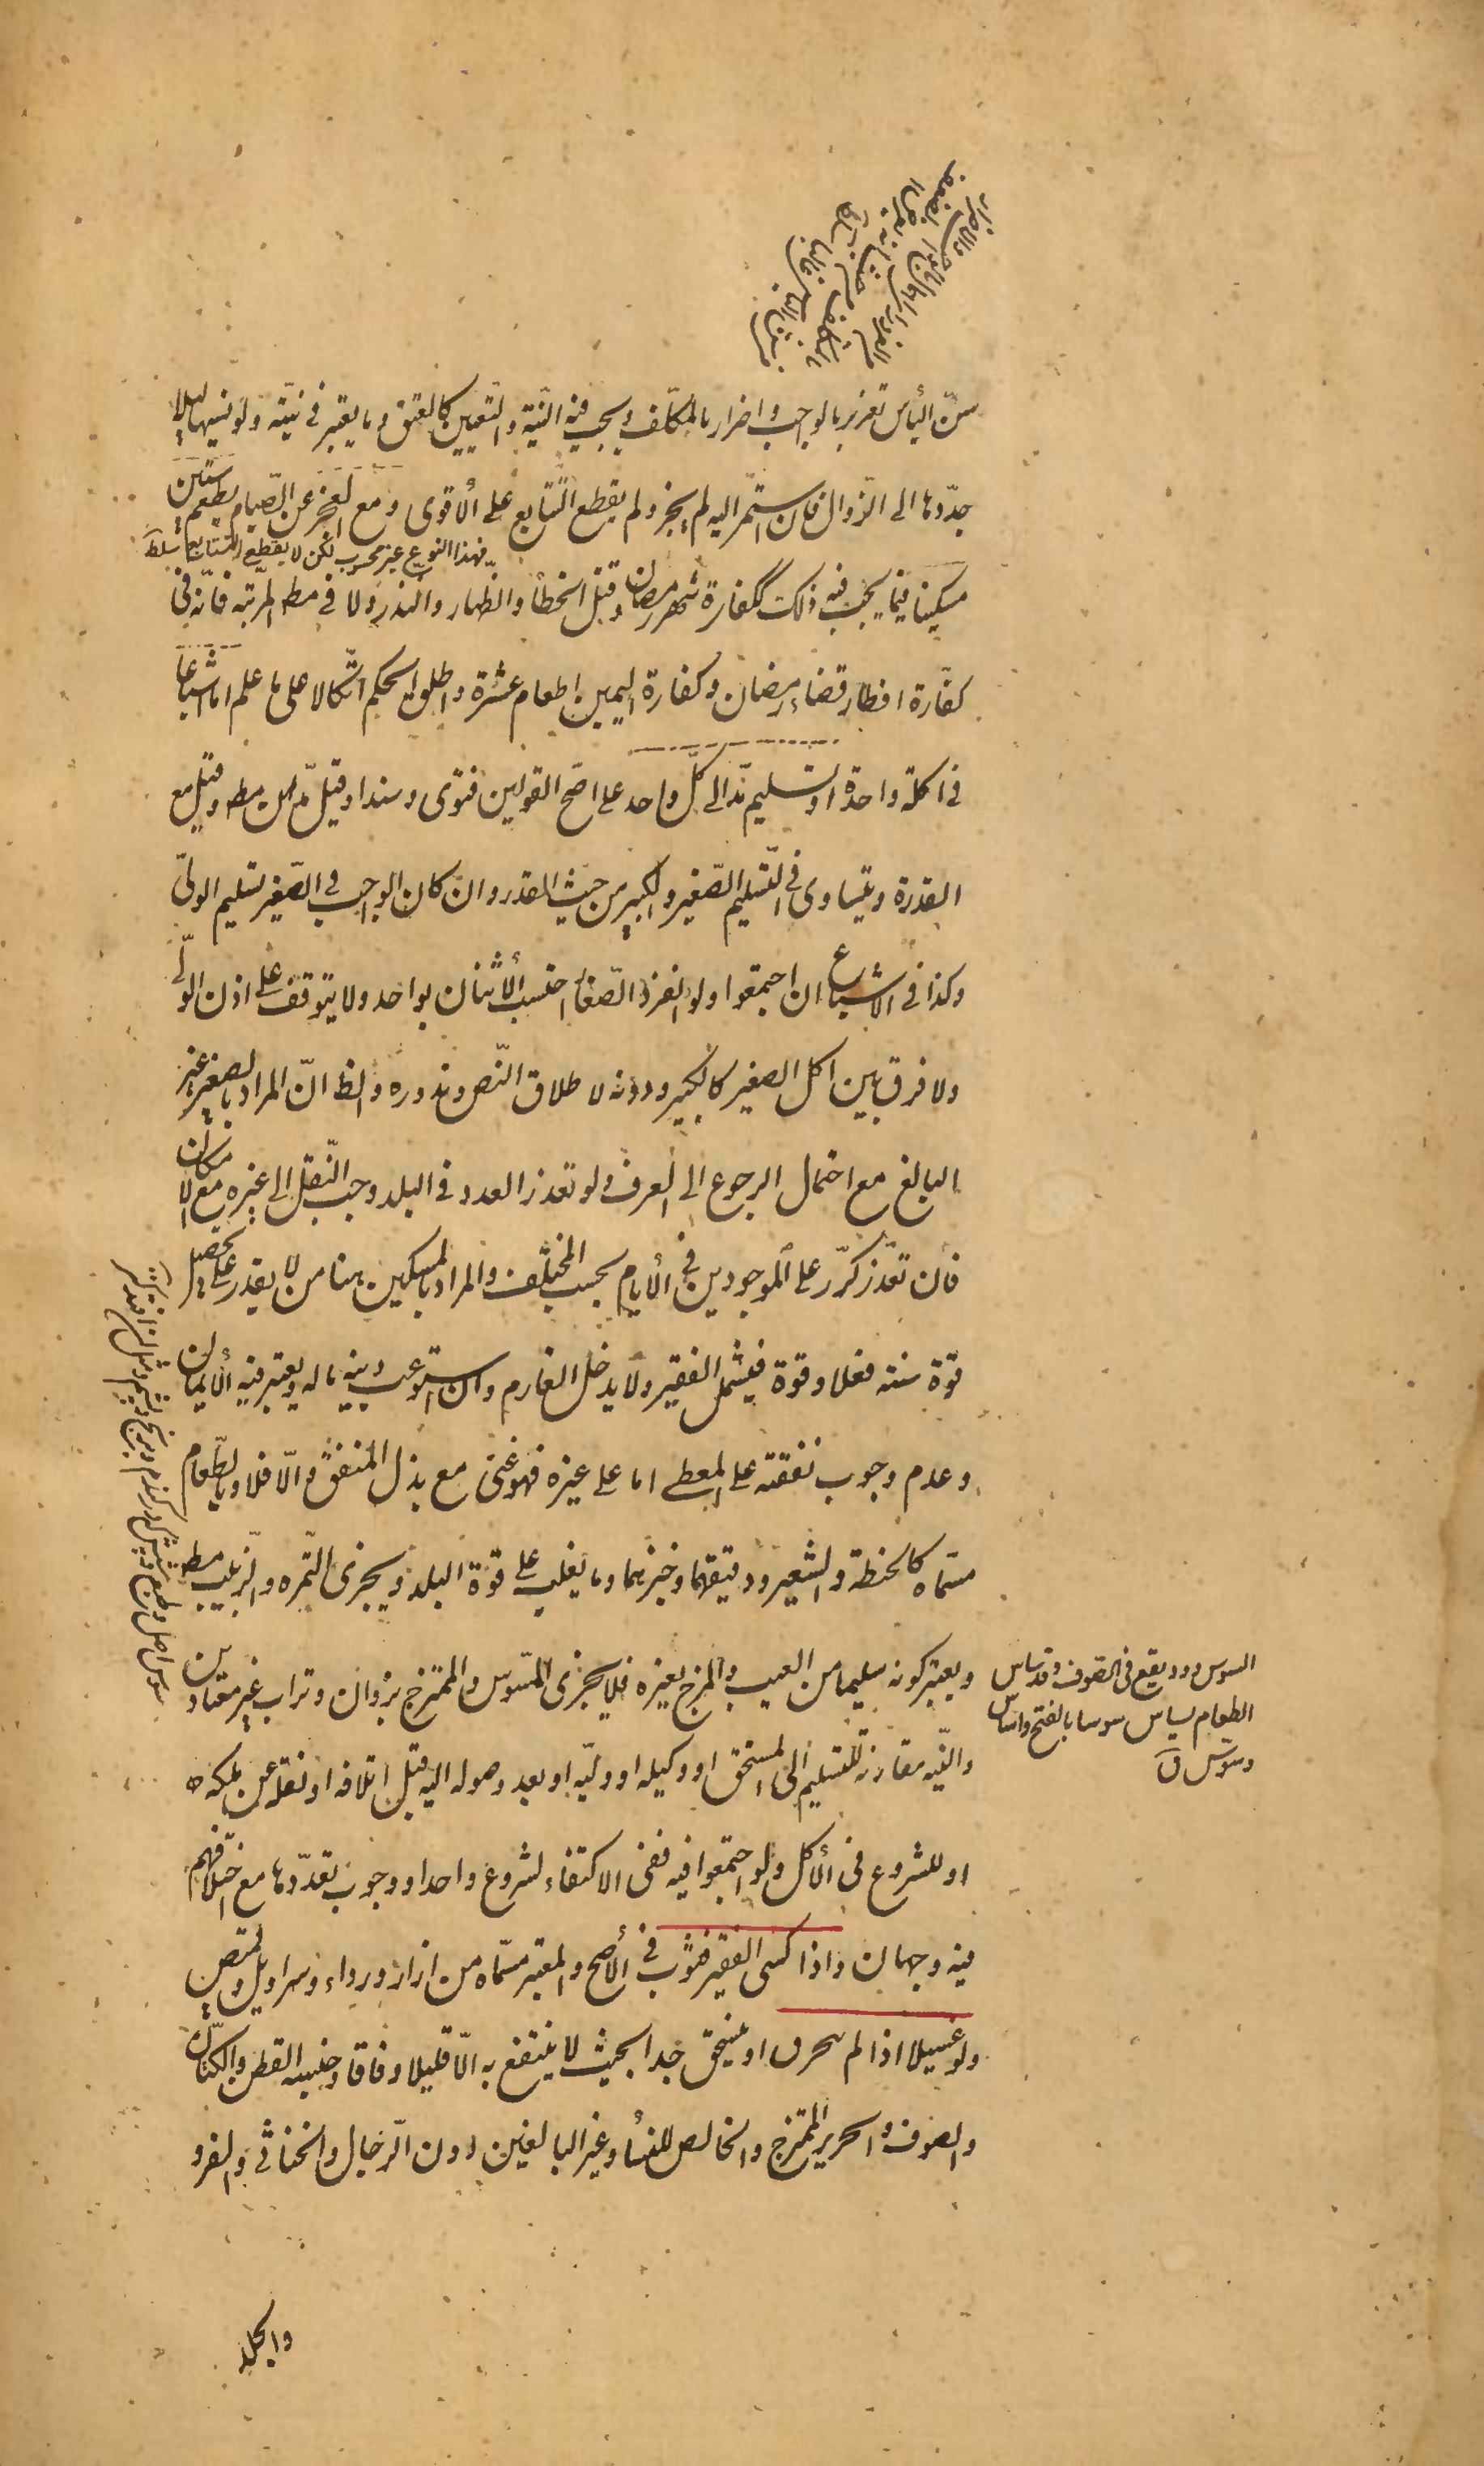 سن اليأس تغرير بالواجب و اضرار بالمكلف و يجب فيه النية والتعيين كالعتق و ما يعتبر في نيته ولو نسيها ليلا
جدّدها الى الزّوال فان استمر اليه لم يجز ولم يقطع التتابع على الأقوى ومع العجز عن الصّيام يطعم ستين
فهذا النوع غير محسوب لكن لا يقطع التتابع
مسكينا فيما يجب فيه ذلك ككفارة شهر رمضان وقتل الخطأ والظهار والنذر ولا في مط المرتبه فانّه في
كفّارة افطار قضاء رمضان وكفارة اليمين اطعام عشرة واطلق الحكم اتّكالا على ما علم اما اشباعا
في اكلة واحدة او تسليم مدّ الى كلّ واحد على اصح القولين فتوى وسندا وقيل مدّان مط وقيل مع
القدرة ويتساوى في التّسليم الصّغير والكبير من حيث القدر وان كان الواجب في الصّغير تسليم الولىّ
وكذا في الاشباع ان اجتمعوا ولو انفرد الصّغار احتسب الأثنان بواحد ولا يتوقف على اذن الولّى
ولا فرق بين اكل الصغير كالكبير ودونه لاطلاق النّص وندوره والظ انّ المراد بالصغير غير
البالغ مع احتمال الرجوع الى العرف ولو تعذر العدد في البلد وجب النّقل الى غيره مع الامكان
فان تعذّر كرّر على الموجودين في الأيام بحسب المختلف والمراد بالمسكين هنا من لا يقدر على تحصيل
قوّة سنته فعلا وقوة فيشمل الفقير ولا يدخل الغارم وان استوعب دينه ماله ويعتبر فيه الأيمان
وعدم وجوب نفقته على المعطى اما على غيره فهو غنى مع بذل المنفق والّا فلا وبالطّعام
مسمّاه كالحنطة والشعير ودقيقهما وخبزهما وما يغلب على قوة البلد ويجزى التّمره والزّبيب مط
ويعتبر كونه سليما من العيب والمزج بغيره فلا يجزى المسّوس والممتزج بزوان وتراب غير معتادين
والنّيه مقارنة للتسليم الى المستحق او وكيله او وليّه او بعد وصوله اليه قبل اتلافه او نقله عن ملكه
او للشروع في الأكل ولو اجتمعوا فيه ففى الاكتفاء بشروع واحد او وجوب تعدّدها مع اختلافهم
فيه وجهان واذا كسى الفقير فثوب في الأصح والمعتبر مسمّاه من ازار ورداء وسراويل وقميص
ولو غسيلا اذا لم يتخرق او ينسحق جدا بحيث لا ينتفع به الّا قليلا وفاقا وجنسه القطن والكتّان
والصوف والحرير الممتزج والخالص للنساء وغير البالغين دون الرّجال والخناثى والفرو
السوس دود يقع في الصوف وقد ساس
الطعام يساس سوسا بالفتح واساس
وسوّس ق
والجلد